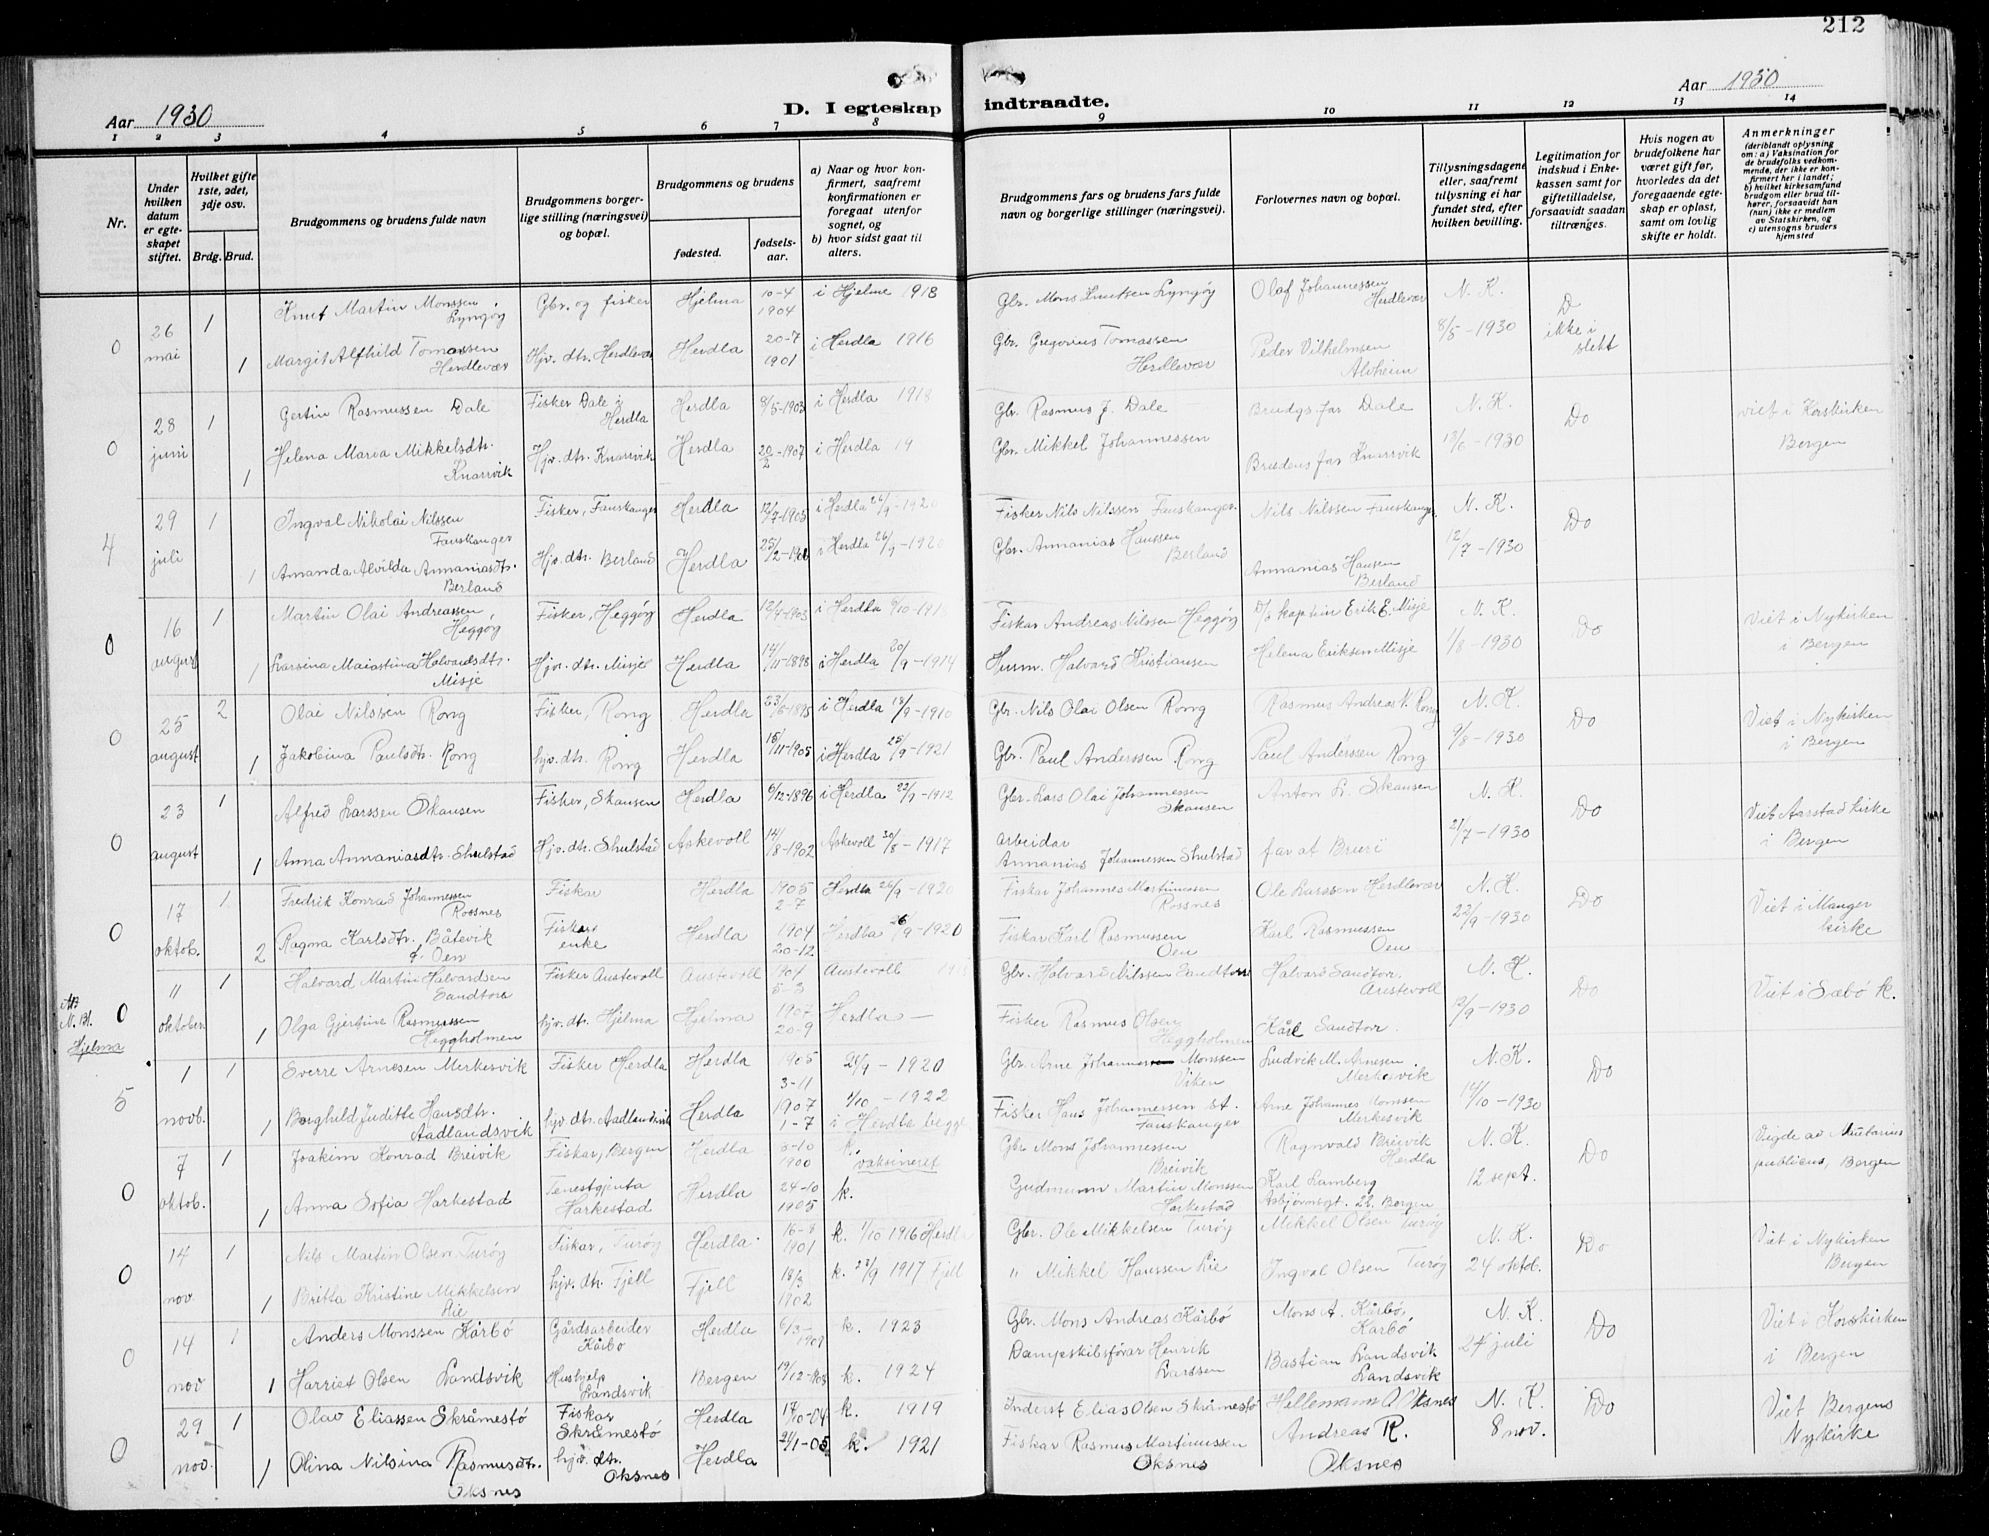 212
Aar 1930
D. I egteskap indtraadte.
Aar 1930
1 2 3 4 5 6 7 8 9 10 11 12 13 14
Nr.
Under hvilken datum er egteskapet stiftet.
Hvilket gifte 1ste, 2det, 3dje osv.
Brdg. Brud.
Brudgommens og brudens fulde navn
Brudgommens borgerlige stilling (næringsvei) og bopæl.
Brudgommens og brudens
fødested.
fødselsaar.
a) Naar og hvor konfirmert, saafremt konfirmationen er foregaat utenfor sognet, og
b) hvor sidst gaat til alters.
Brudgommens fars og brudens fars fulde navn og borgerlige stillinger (næringsvei).
Forlovernes navn og bopæl.
Tillysningsdagene eller, saafremt tillysning ei har fundet sted, efter hvilken bevilling.
Legitimation for indskud i Enkekassen samt for giftetilladelse, forsaavidt saadan tiltrænges.
Hvis nogen av brudefolkene har været gift før, hvorledes da det foregaaende egteskap er opløst, samt om lovlig skifte er holdt.
Anmerkninger
(deriblandt oplysning om: a) Vaksination for de brudefolks vedkommende, der ikke er konfirmert her i landet; b) hvilket kirkesamfund brudgom eller brud tilhører, forsaavidt han (hun) ikke er medlem av Statskirken, og c) utensogns bruders hjemsted
0 26 mai 1 Knut Martin Monssen Lyngøy Gbr. og fisker Hjelma 10-4 1904 i Hjelme 1918 Gbr. Mons Knutsen Lyngøy Olaf Johannessen Herdlevær N. K. 8/5-1930 D ikke i slekt
1 Margit Alfhild Tomassen Herdlevær Hjv. dtr. Herdlevær Herdla 20-7 1901 i Herdla 1916 Gbr. Gregorius Tomassen Herdlevær Peder Vilhelmsen Alvheim
0 28 juni 1 Gertin Rasmussen Dale Fisker Dale i Herdla Herdla 8/5-1903 i Herdla 1918 Gbr. Rasmus J. Dale Brudgs far Dale N. K. 13/6-1930 Do viet i Korskirken Bergen
1 Helena Maria Mikkelsdtr. Knarrvik Hjv. dtr. Knarrvik Herdla 20/2-1907 i Herdla 19 Gbr. Mikkel Johannessen Brudens far Knarrvik
4 29 juli 1 Ingval Nikolai Nilssen Fauskanger Fisker, Fauskanger Herdla 12/7-1905 i Herdla 26/9-1920 Fisker Nils Nilssen Fauskanger Nils Nilssen Fauskanger N. K. 12/7-1930 Do
1 Amanda Alvilda Annaniasdtr. Berland Hjv. dtr. Berland Herdla 25/2-1906 i Herdla 26/9-1920 Gbr. Annanias Hanssen Berland Annanias Hansen Berland
0 16 august 1 Martin Olai Andreassen Heggøy Fisker, Heggøy Herdla 12/4-1903 i Herdla Fiskar Andreas Nilssen Heggøy D/s kaptein Erik E. Misje N. K. 1/8-1930 Do Viet i Nykirken i Bergen
1 Larsina Maiastina Halvardsdtr. Misje Hjv. dtr. Misje Herdla 14/11-1898 i Herdla 20/9-1914 Husm. Halvard Kristiansen Helena Eriksen Misje
0 25 august 2 Olai Nilssen Rong Fisker, Rong Herdla 23/6-1895 i Herdla 18/9-1910 Gbr. Nils Olai Olsen Rong Rasmus Andreas N. Rong N. K. 9/8-1930 Do Viet i Nykirken i Bergen
1 Jakobina Paulsdtr. Rong hjv. dtr. Rong Herdla 15/11-1905 i Herdla 25/9-1921 Gbr. Paul Anderssen Rong Paul Anderssen Rong
0 23 august 1 Alfred Larssen Skausen Fisker, Skausen Herdla 6/12-1896 i Herdla 22/9-1912 Gbr. Lars Olai Johannessen Skausen Anton L. Skausen N. K. 21/7-1930 Do Viet Aarstad kirke i Bergen
1 Anna Annaniasdtr. Skulstad Hjv. dtr. Skulstad Askevoll 14/8-1902 Askevoll 30/8-1917 arbeidar Annanias Johannessen Skulstad far at Bruri
0 17 oktob. 1 Fredrik Konrad Johannessen Rossnes Fiskar Herdla 1905 2-7 Herdla 26/9-1920 Fiskar Johannes Martinussen Rossnes Ole Larssen Herdlevær N. K. 22/9-1930 Do Viet i Manger kirke
2 Ragna Karlsdtr. Båtevik f. Oen Fiskar enke Herdla 1904 20-12 Herdla 26/9-1920 Fiskar Karl Rasmussen Oen Karl Rasmussen Oen
M. Bl. Hjelma 0 11 oktober 1 Halvard Martin Halvardsen Sandtorv Fisker Austevoll Austevoll 1904 5-3 Austevoll Gbr. Halvard Nilssen Sandtorv Halvard Sandtorv. Austevoll N. K. 12/9-1930 Do Viet i Sæbø k.
1 Olga Gjertine Rasmussen Heggholmen hjv. dtr. Hjelma Hjelma 1907 20-9 Herdla - Fisker Rasmus Olsen Heggholmen Kårl Sandtorv.
5 1 novb. 1 Sverre Arnesen Merkesvik Fisker Herdla Herdla 1905 3-11 26/9-1920 Gbr. Arne Johannes Monssen Viken Ludvik M. Arnesen Merkesvik N. K. 14/10-1930 Do
1 Borghild Juditte Hansdtr. Aadlandsvik hjv dtr. Aadlandsvik Herdla 1907 1-7 1/10-1922 i Herdla begge Fisker Hans Johannessen st. Fauskanger Arne Johannes Monssen Merkesvik
0 7 oktob. 1 Joakim Konrad Breivik Fiskar, Bergen Herdla 3-10 1900 k. vaksineret Gbr. Mons Johannessen Breivik Ragnvald Breivik Herdla N. K. 12 sept. Do Vigde av Notarius publicus, Bergen
1 Anna Sofia Harkestad Tenestgjenta Harkestad Herdla 24-10 1905 k. Gudmunn Martin Monssen Harkestad Karl Lamberg Asbjørnsgt. 22 Bergen
0 14 nov. 1 Nils Martin Olsen Turøy Fiskar, Turøy Herdla 16-8 1901 k. 1/10 1916 Herdla Gbr. Ole Mikkelsen Turøy Mikkel Olsen Turøy N. K. 24 oktob. Do Viet i Nykirken Bergen
1 Britta Kristine Mikkelsen Lie hjv. dtr. Fjell Fjell 18/3 1902 k. 23/9 1917 Fjell " Mikkel Hanssen Lie Ingval Olsen Turøy
0 14 nov 1 Anders Monssen Kårbø Gårdsarbeider Kårbø Herdla 6/3- k. 1923 Gbr. Mons Andreas Kårbø Mons A. Kårbø, Kårbø N. K. 24 juli Do Viet i Korskirken i Bergen
1 Harriet Olsen Landsvik Hushjelp Landsvik Bergen k. 1924 Dampskibsførar Henrik Larssen Bastian Landsvik Landsvik
0 29 nov. 1 Olav Eliassen Skråmestø Fiskar Skråmestø Herdla 17/10-04 k. 1919 Inderst Elias Olsen Skråmestø Hellemann A Oksnes N. K. 8 nov. Do Viet Bergens Nykirke
1 Olina Nilsina Rasmusdtr. Oksnes hjv. dtr. Oksnes Herdla 21/1-05 k. 1921 Fiskar Rasmus Martinussen Oksnes Andreas R. Oksnes